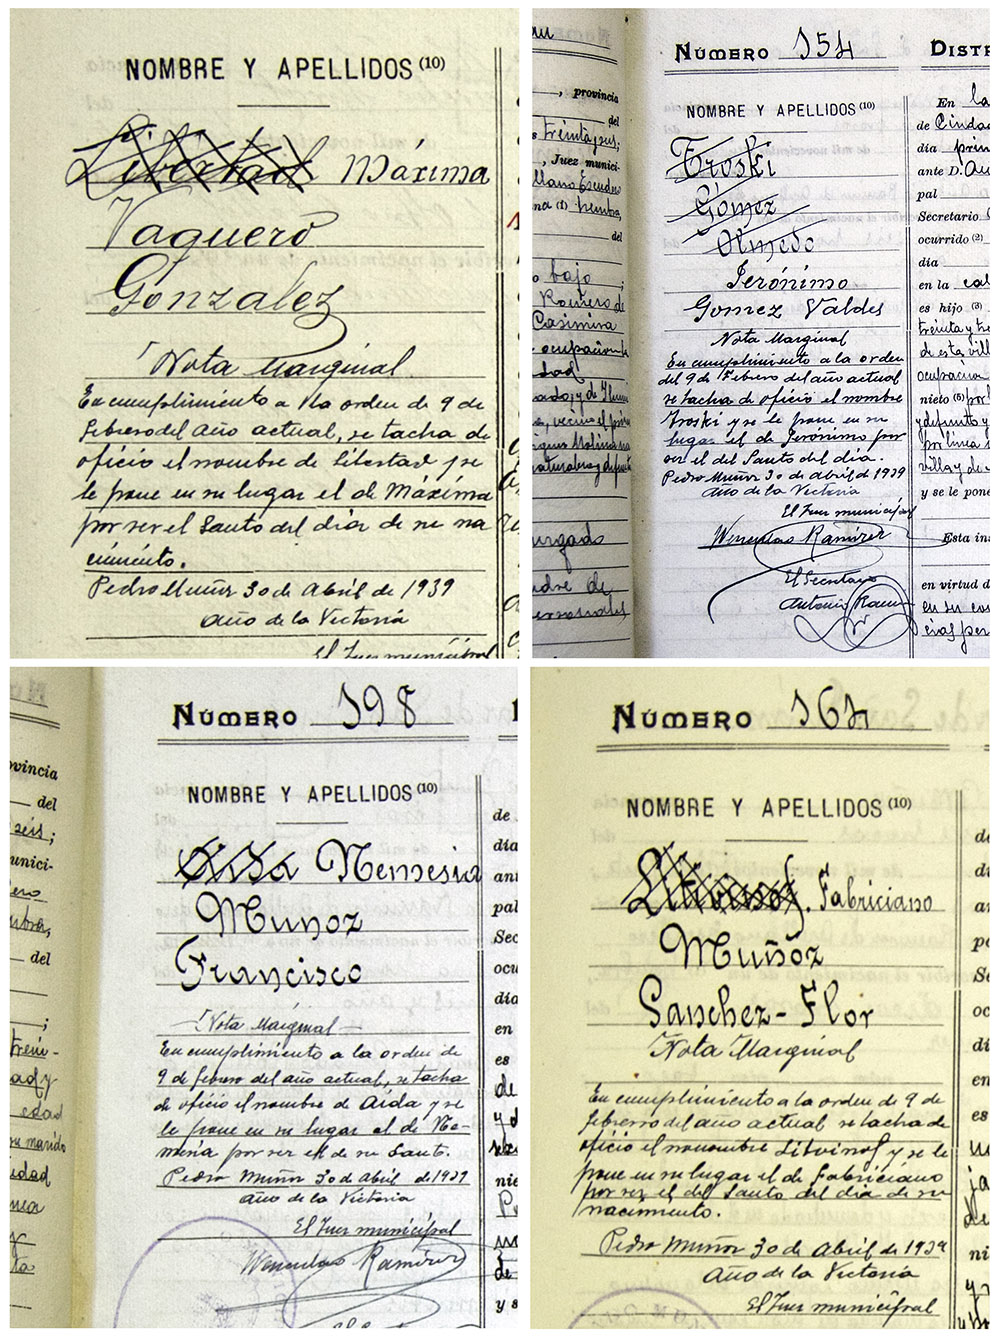 NOMBRE Y APELLIDOS (10)
Libertad Maxima
Vaquero
Gonzalez
Nota Marginal
En cumplimiento a la orden de 9 de
febrero del año actual, se tacha de
oficio el nombre de Libertad y se
le pone en su lugar el de Máxima
por ser el Santo del día de su na
cimiento.
Pedro Muñoz 30 de Abril de 1939
Año de la Victoria
El Juez municipal
, provincia
del
treinta y seis;
, Juez munici-
hembra,
del
bajo
Romero de
Casimira
NÚMERO 154
NOMBRE Y APELLIDOS (10)
Troski
Gómez
Olmedo
Jerónimo
Gomez Valdes
Nota Marginal
En cumplimiento a la orden
del 9 de Febrero del año actual
se tacha de oficio el nombre
Troski y se le pone en su
lugar el de Jeronimo por
ser el del Santo del día.
Pedro Muñoz 30 de abril de 1939
Año de la Victoria
El Juez municipal
Wenceslao Ramirez
El Secretario
Antonio
DISTR
En la
de Ciudad
día prim
ante D. Au
pal
Secretario
ocurrido (2)
día
en la cal
es hijo (3)
treinta y tre
de esta vill
ocupación
nieto (5) por l
y defunto y
por linea
villa y de
y se le pone
Esta ins
en virtud d
en su con
ovincia
del
seis;
unici-
del
;
edad
su marido
NÚMERO 198
NOMBRE Y APELLIDOS (10)
Aida Nemesia
Muñoz
Francisco
Nota Marginal
En cumplimiento a la orden de
9 de febrero del año actual, se tacha
de oficio el nombre de Aida y se
le pone en su lugar el de Ne-
mesia por ser el de su Santo.
Pedro Muñoz 30 de Abril de 1939
Año de la Victoria
El Juez municipal
Wenceslao Ramirez
de
día
ant
pal
Sec
ocu
día
en
es
de
nie
y s
NÚMERO 164
NOMBRE Y APELLIDOS (10)
Litvinof. Fabriciano
Muñoz
Sanchez-Flor
Nota Marginal
En cumplimiento a la orden de 9 de
febrero del año actual se tacha de
oficio el nombre Litvinof y se le
pone en su lugar el de Fabriciano
por ser el del Santo del día de su
nacimiento.
Pedro Muñoz 30 de Abril de 1939
Año de la Victoria
El Juez municipal
de
di
an
pa
Se
oc
di
en
es
ni